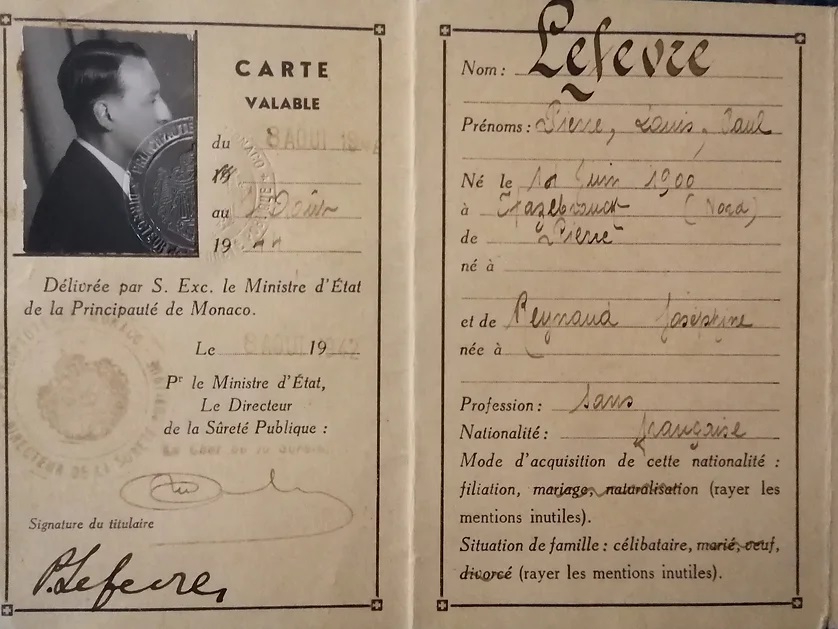 CARTE
VALABLE
du 8 AOUT
19
au Août
19
Délivrée par S. Exc. le Ministre d'État
de la Principauté de Monaco.
Le 8 AOUT 19
Pr le Ministre d'État,
Le Directeur
de la Sûreté Publique :
Signature du titulaire
P. Lefevre
Nom : Lefevre
Prénoms : Pierre, Louis, Paul
Né le 1er Juin 1900
à Hazebrouck (Nord)
de Pierre
né à
et de Reynaud Joséphine
née à
Profession : sans
Nationalité : française
Mode d'acquisition de cette nationalité :
filiation, mariage, naturalisation (rayer les
mentions inutiles).
Situation de famille : célibataire, marié, veuf,
divorcé (rayer les mentions inutiles).